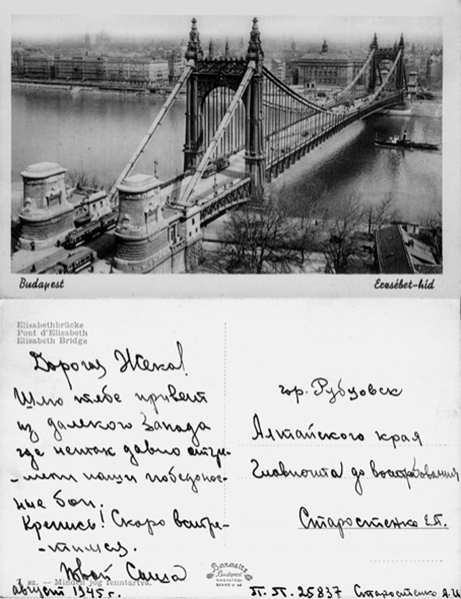 Budapest
Erzsébet-híd
Elisabethbrücke
Pont d'Elisabeth
Elisabeth Bridge
Дорогая Жека!
Шлю тебе привет
из далекого Запада
где не так давно отгре-
-мели наши победонос-
ные бои.
Крепись! Скоро встре-
-тимся.
Твой Саша
август 1945 г.
sz. — Minden jog fenntartva.
Barasits
Budapest
гор. Рубцовск
Алтайского края
Главпочта до востребования
Старостенко Е.П.
П.П. 25837 Старостенко А.И